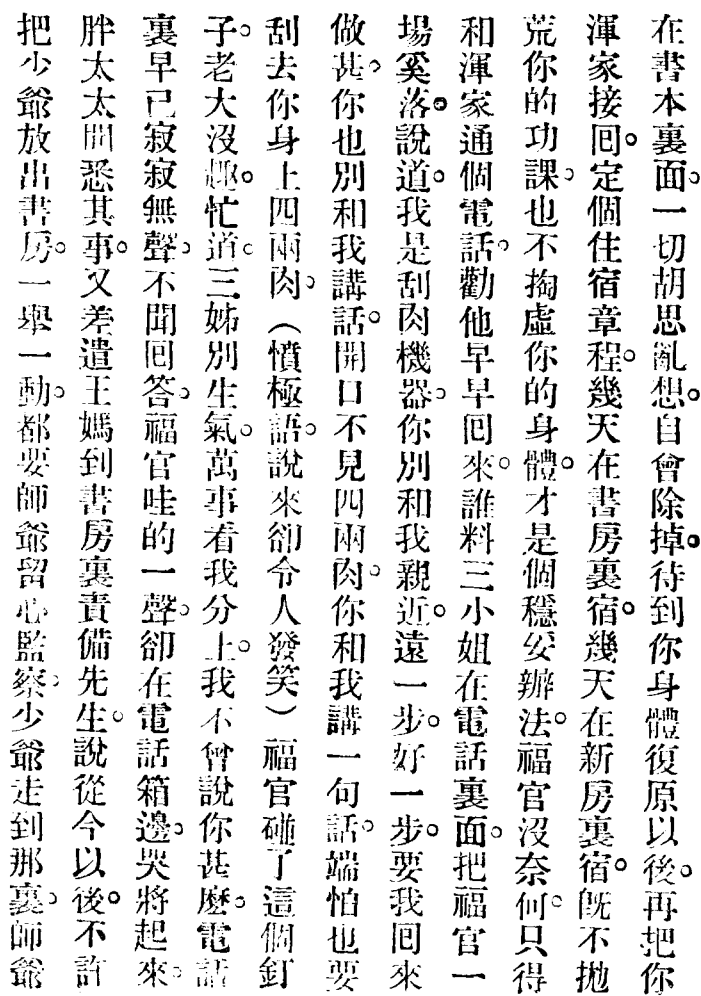 在書本裏面。一切胡思亂想。自會除掉。待到你身體復原以後。再把你
渾家接回。定個住宿章程。幾天在書房裏宿。幾天在新房裏宿。旣不拋
荒你的功課。也不掏虛你的身體。才是個穩妥辦法。福官沒奈何。只得
和渾家通個電話。勸他早早回來。誰料三小姐在電話裏面。把福官一
場奚落。說道。我是刮肉機器。你別和我親近。遠一步。好一步。要我回來
做甚。你也別和我講話。開口不見四兩肉。你和我講一句話。端怕也要
刮去你身上四兩肉。（憤極語。說來卻令人發笑）福官碰了這個釘
子。老大沒趣。忙道。三姊別生氣。萬事看我分上。我不曾說你甚麽。電話
裏早已寂寂無聲。不聞回答。福官哇的一聲。卻在電話箱邊。哭將起來。
胖太太問悉其事。又差遣王媽到書房裏責備先生。說從今以後。不許
把少爺放出書房。一舉一動。都要師爺留心監察。少爺走到那裏。師爺